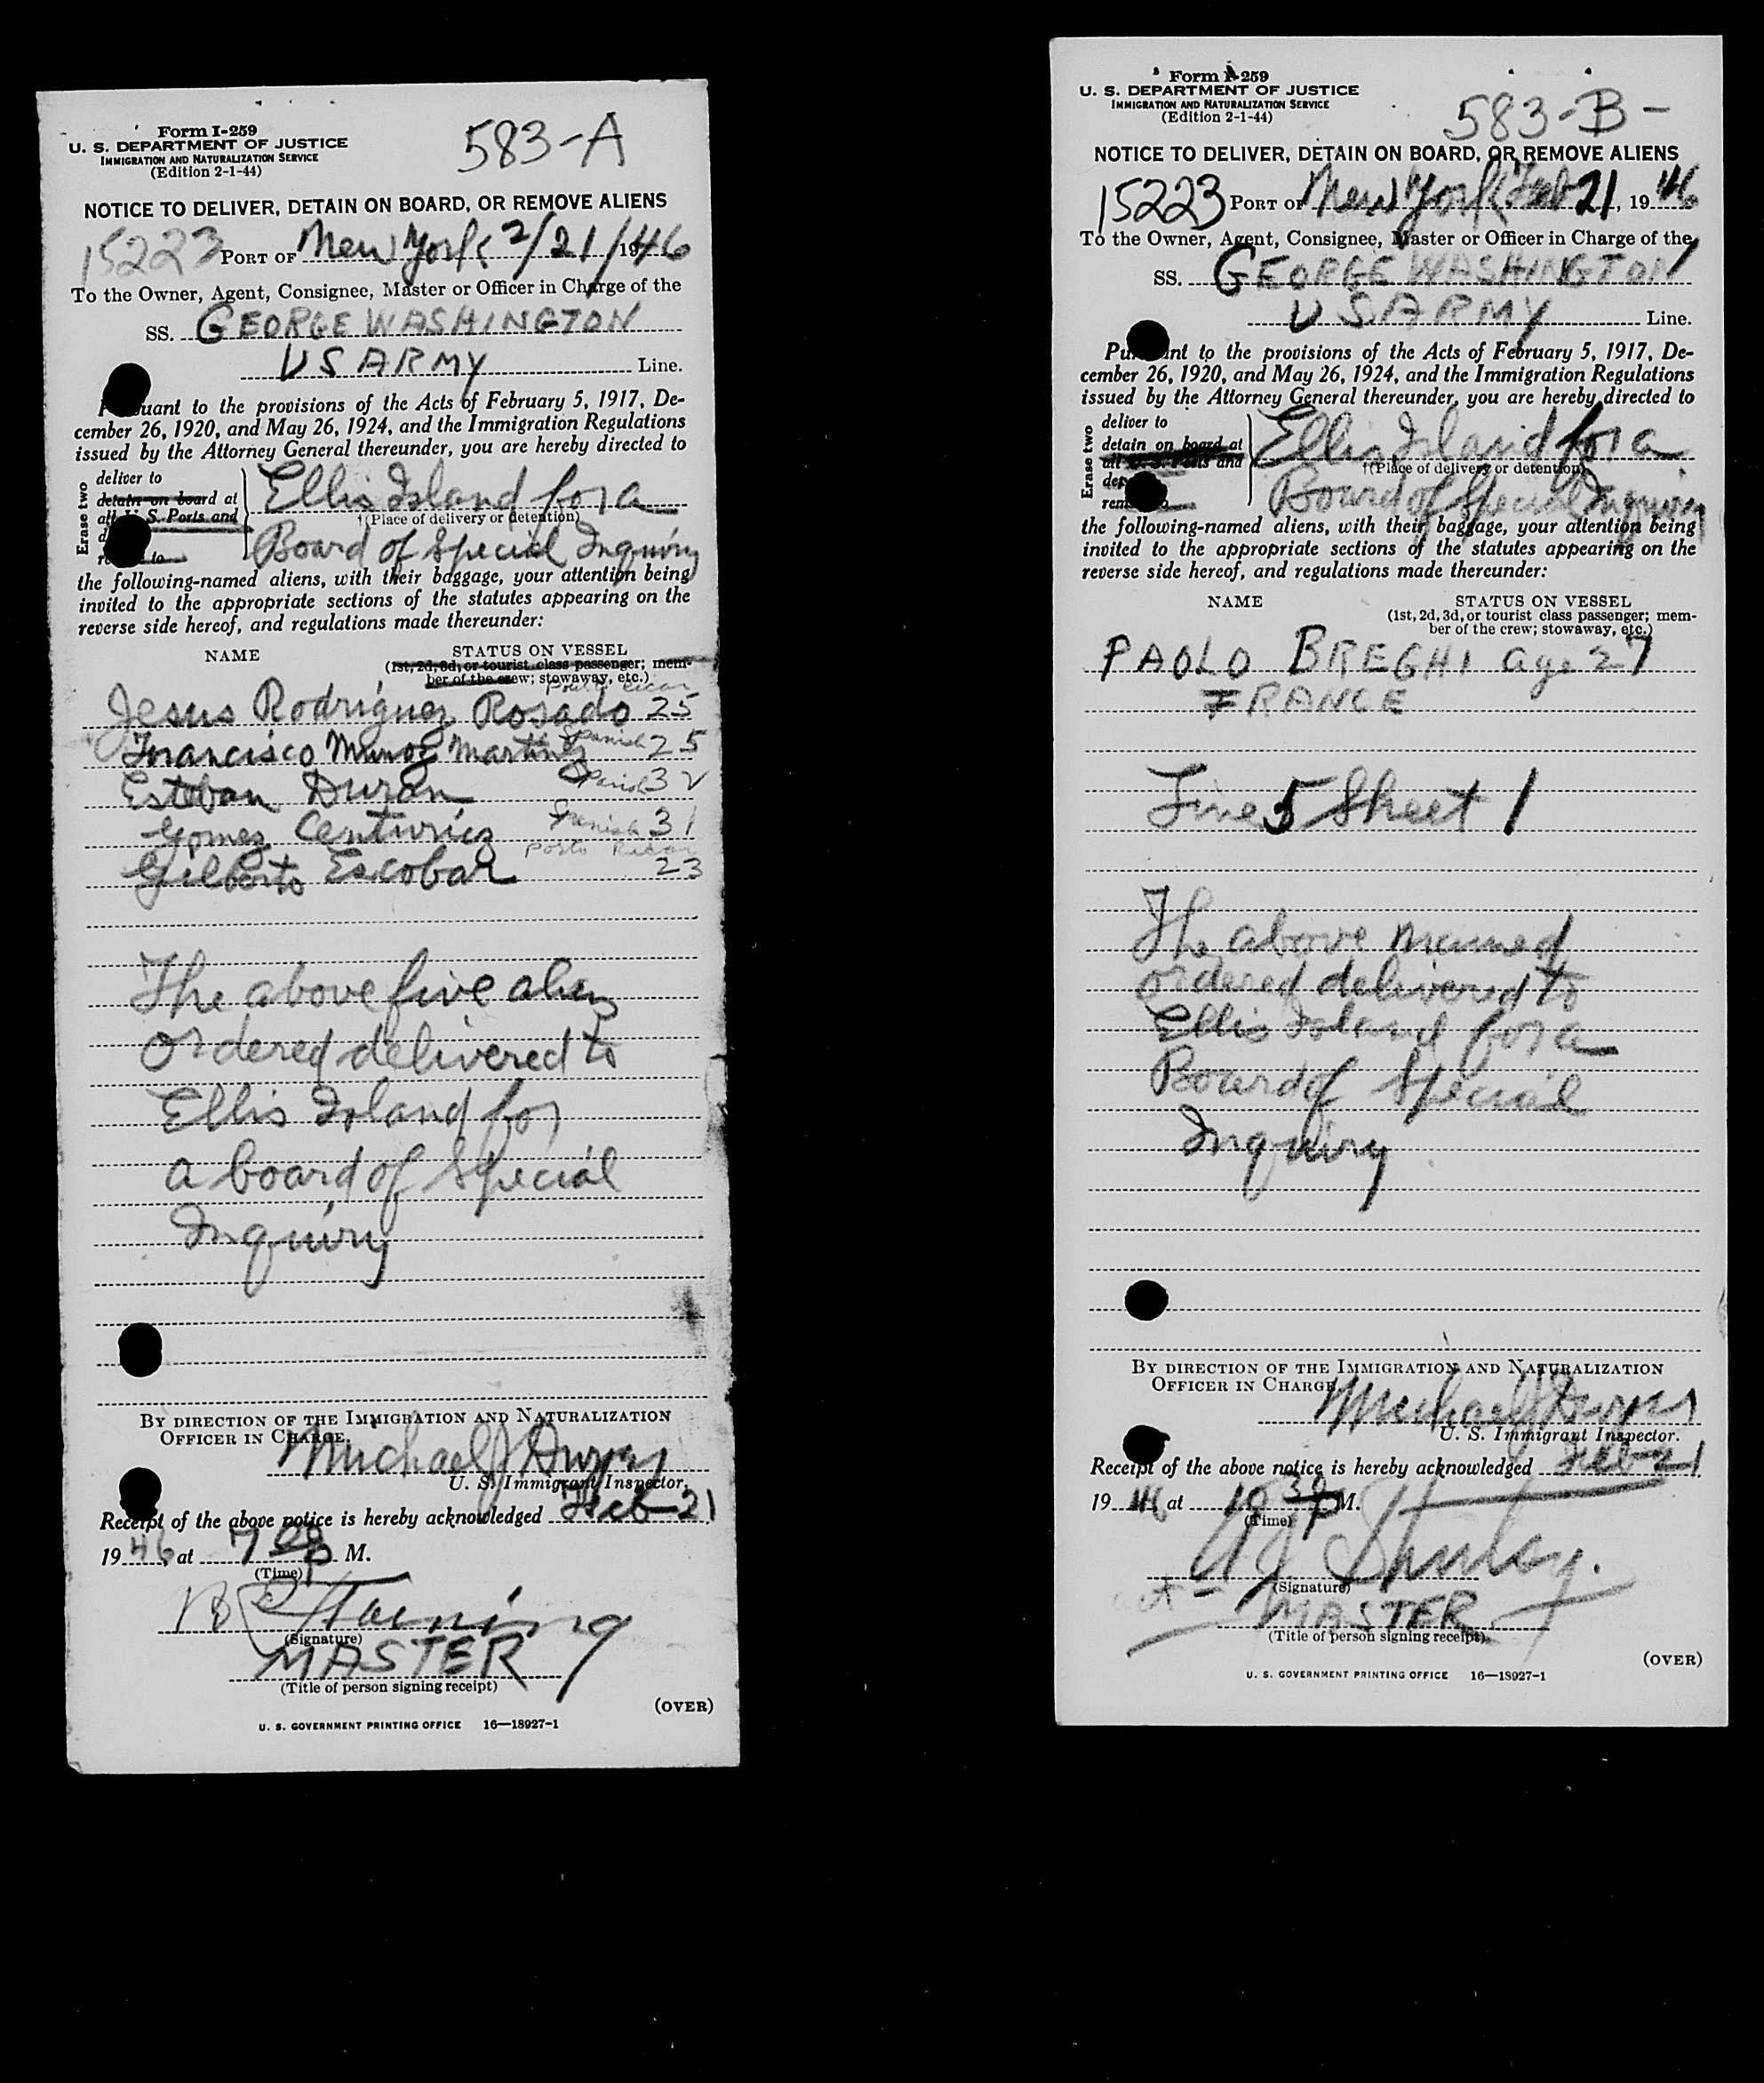 Form I-259
U. S. DEPARTMENT OF JUSTICE
IMMIGRATION AND NATURALIZATION SERVICE
(Edition 2-1-44)
583-A
NOTICE TO DELIVER, DETAIN ON BOARD, OR REMOVE ALIENS
15223 PORT OF New York 2/21/1946
To the Owner, Agent, Consignee, Master or Officer in Charge of the
SS. GEORGE WASHINGTON
US ARMY Line.
Pursuant to the provisions of the Acts of February 5, 1917, De-
cember 26, 1920, and May 26, 1924, and the Immigration Regulations
issued by the Attorney General thereunder, you are hereby directed to
Erase two
deliver to
detain on board at
all U. S. Ports and
to
Ellis Island for a
(Place of delivery or detention)
Board of Special Inquiry
the following-named aliens, with their baggage, your attention being
invited to the appropriate sections of the statutes appearing on the
reverse side hereof, and regulations made thereunder:
NAME STATUS ON VESSEL
(1st, 2d, 3d, or tourist class passenger; mem-
ber of the crew; stowaway, etc.)
Jesus Rodriguez Rosado 25
Francisco Munoz Martinez Spanish 25
Esteban Duran Spanish 32
Gomez Centuriez Spanish 31
Porto Rican
Gilberto Escobar 23
The above five aliens
ordered delivered to
Ellis Island for
a board of Special
Inquiry
BY DIRECTION OF THE IMMIGRATION AND NATURALIZATION
OFFICER IN CHARGE.
Michael J
U. S. Immigrant Inspector.
Receipt of the above notice is hereby acknowledged Feb 21
1946, at 7 00 P M.
(Time)
(Signature)
MASTER
(Title of person signing receipt)
(OVER)
U. S. GOVERNMENT PRINTING OFFICE 16—18927-1
Form I-259
U. S. DEPARTMENT OF JUSTICE
IMMIGRATION AND NATURALIZATION SERVICE
(Edition 2-1-44)
583-B-
NOTICE TO DELIVER, DETAIN ON BOARD, OR REMOVE ALIENS
15223 PORT OF New York Feb 21, 1946
To the Owner, Agent, Consignee, Master or Officer in Charge of the
SS. GEORGE WASHINGTON
US ARMY Line.
Pursuant to the provisions of the Acts of February 5, 1917, De-
cember 26, 1920, and May 26, 1924, and the Immigration Regulations
issued by the Attorney General thereunder, you are hereby directed to
Erase two
deliver to
detain on board at
all U. S. Ports and
Ellis Island for a
(Place of delivery or detention)
Board of Special Inquiry
the following-named aliens, with their baggage, your attention being
invited to the appropriate sections of the statutes appearing on the
reverse side hereof, and regulations made thereunder:
NAME STATUS ON VESSEL
(1st, 2d, 3d, or tourist class passenger; mem-
ber of the crew; stowaway, etc.)
PAOLO BREGHI age 27
FRANCE
Line 5 Sheet 1
The above named
ordered delivered to
Ellis Island for a
Board of Special
Inquiry
BY DIRECTION OF THE IMMIGRATION AND NATURALIZATION
OFFICER IN CHARGE
Michael J
U. S. Immigrant Inspector.
Receipt of the above notice is hereby acknowledged Feb 21
1946 at 10 30 P M.
(Time)
(Signature)
MASTER
(Title of person signing receipt)
(OVER)
U. S. GOVERNMENT PRINTING OFFICE 16—18927-1